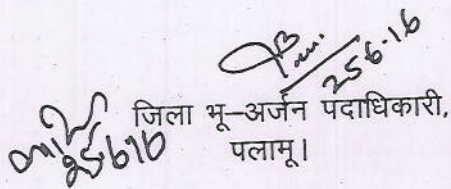 25.6.16
25616
जिला भू-अर्जन पदाधिकारी,
पलामू।